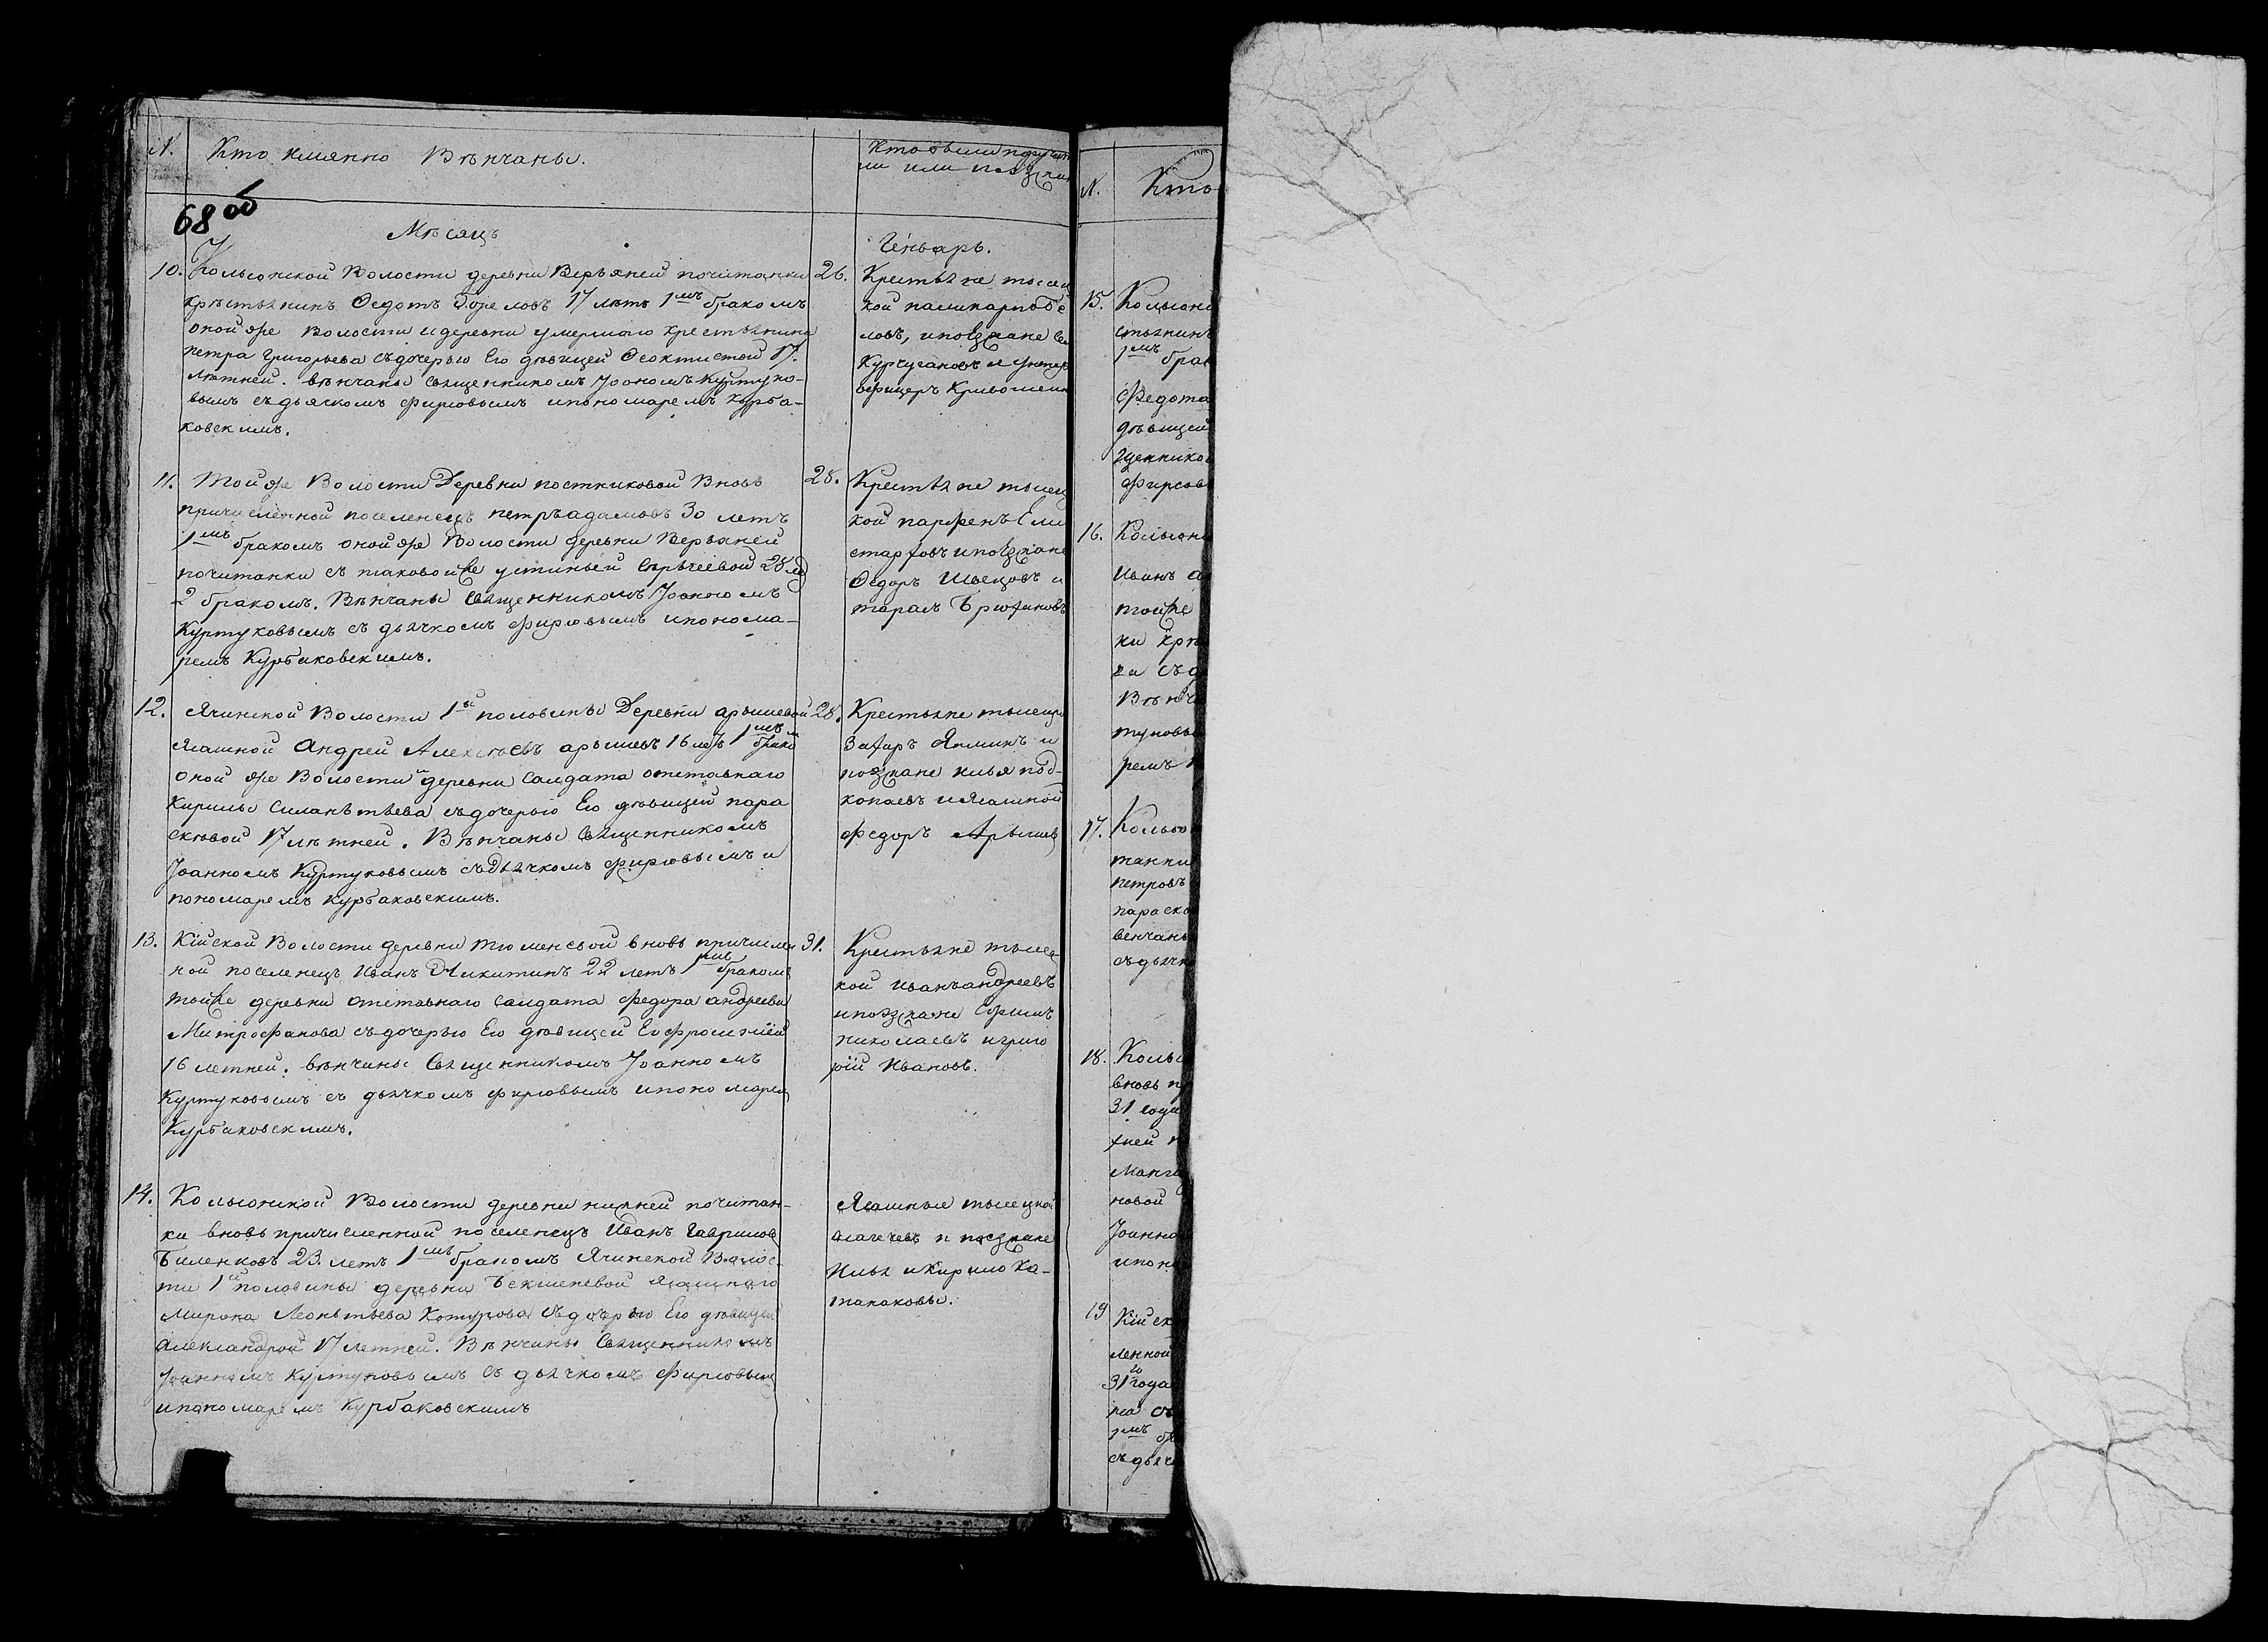 N. Кто имянно Вѣнчаны.
Кто были поручит
ли или поѣзжан
68 об
Мѣсяцъ
Генварь.
10. Кольіонской Волости деревни Верхней почитанки
крѣстьянинъ Ѳедотъ Гореловъ 17 лѣтъ 1мъ бракомъ
оной же волости и деревни умершаго крестьянина
петра Григорьева съ дочерью Его дѣвицей Ѳеоктистой 17.
лѣтней. вѣнчаны священникомъ Іоаномъ Куртуко-
вымъ съ дьячкомъ фирсовымъ и пономаремъ Курба-
ковскимъ.
26. Крестьяне тысец
кой паликарпъ
ловъ, и поѣзжане
Курчугановъ и унтеръ
офицеръ Кривошеин
11. Той же Волости Деревни постниковой Вновь
причисленной поселенецъ петръ адамовъ 30 летъ
1мъ бракомъ оной же Волости деревни Верхней
почитанки съ таковой же устиньей Сергѣевой 28 ле
2 бракомъ. Вѣнчаны Священникомъ Іоанномъ
Куртуковымъ съ дьячкомъ фирсовымъ и понома-
ремъ Курбаковскимъ.
28. Крестьяне тысец
кой парфенъ Ели
старховъ и поѣзжане
Ѳедоръ Швецовъ и
тарасъ Брюхановъ
12. Ячинской Волости 1й половины Деревни арышевой
Ясашной Андрей Алексѣевъ арышевъ 16 летъ 1мъ брако
оной же Волости и деревни Салдата отставнаго
Кирилы Силанѣтьева съ дочерью Его дѣвицей пара
сковой 17 лѣтней. Вѣнчаны Священникомъ
Іоанномъ Куртуковымъ съ Дьячкомъ фирсовымъ и
пономаремъ Курбаковскимъ.
28. Крестьяне тысецкой
Захаръ Яминъ и
поѣзжане илья под-
копаевъ и Ясашной
федоръ Арышев
13. Кійской Волости деревни тюменевой вновь причислен
ной поселенецъ Иванъ Никитинъ 22 летъ 1мъ бракомъ
тойже деревни отставнаго Салдата федора андреева
Митрофанова съ дочерью Его дѣвицей Евфросиніей
16 летней. вѣнчаны Священникомъ Іоанномъ
Куртуковымъ съ дьячкомъ фирсовымъ и пономарем
Курбаковскимъ.
31. Крестьяне тысец-
кой иванъ андреевъ
и поѣзжане Ефимъ
николаевъ и григо
рій Ивановъ.
14. Кольіонской Волости деревни нижней почитан-
ки вновь причисленной поселенецъ Иванъ Гавриловъ
Биленковъ 23. летъ 1мъ бракомъ Ячинской Волос-
ти 1й половины деревни Бекшеневой ясашнаго
Мирона Леонтьева Котурова съ дочерью Его дѣвицей
Александрой 17 летней. Вѣнчаны Священникомъ
Іоанномъ Куртуковымъ съ дьячкомъ Фирсовым
и пономаремъ Курбаковскимъ
Ясашные тысецкой
алагечевъ и поѣзжане
Илья и Кирило Ка-
танаковы.
N. Кто
15. Кольіонс
стьянинъ
1мъ брак
Федота
дѣвицей
щеннико
фирсов
16. Кольіонс
Иванъ
тойже
ки крѣ
ва съ д
Вѣнча
туковы
ремъ
17. Кольіо
танки
петровъ
парасков
венчаны
съ дьячк
18. Коль
вновь пр
31 года
хней п
Манг
новой
Іоанно
и поно
19 Кійск
ленной
31го года
на съ
1мъ бр
съ дьяч